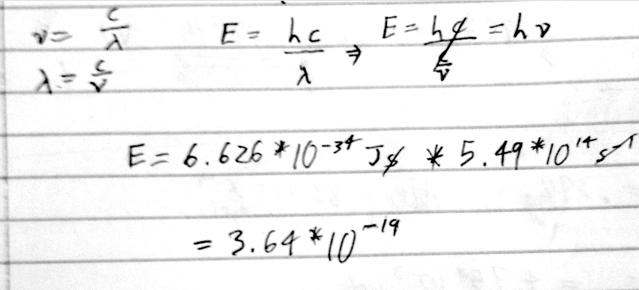 ν = c/λ
E = hc/λ ⇒ E = hc/(c/ν) = hν
λ = c/ν
E = 6.626 * 10^-34 Js * 5.49 * 10^14 s^-1
= 3.64 * 10^-19